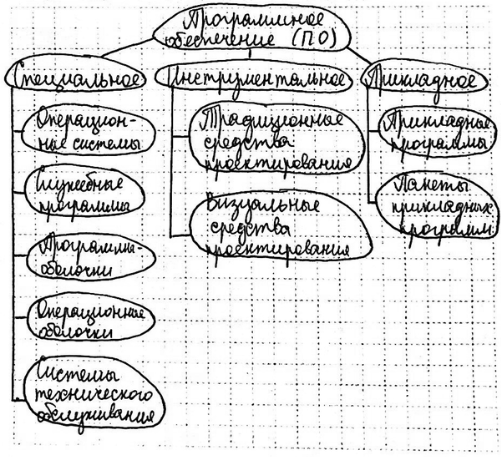 Программное
обеспечение (ПО)
Специальное
Инструментальное
Прикладное
Операцион-
ные системы
Служебные
программы
Программы-
оболочки
Операционные
оболочки
Системы
технического
обслуживания
Традиционные
средства
проектирования
Визуальные
средства
проектирования
Прикладные
программы
Пакеты
прикладных
программ